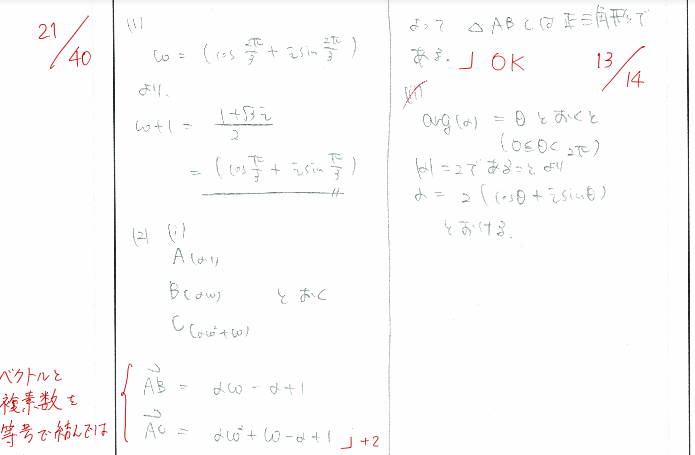 21/40
(1)
ω = (cos 2π/3 + i sin 2π/3)
より、
ω+1 = 1+√3i/2
= (cos π/3 + i sin π/3)
(2) (i)
A(α+1)
B(αω) とおく
C(αω²+ω)
ベクトルと
複素数を
等号で結んでは
AB→ = αω - α+1
AC→ = αω²+ω-α+1 」+2
よって △ABCは正三角形で
ある. 」 OK 13/14
arg(α) = θ とおくと
(0≦θ<2π)
|α|=2であることより
α = 2 (cosθ+isinθ)
とおける.